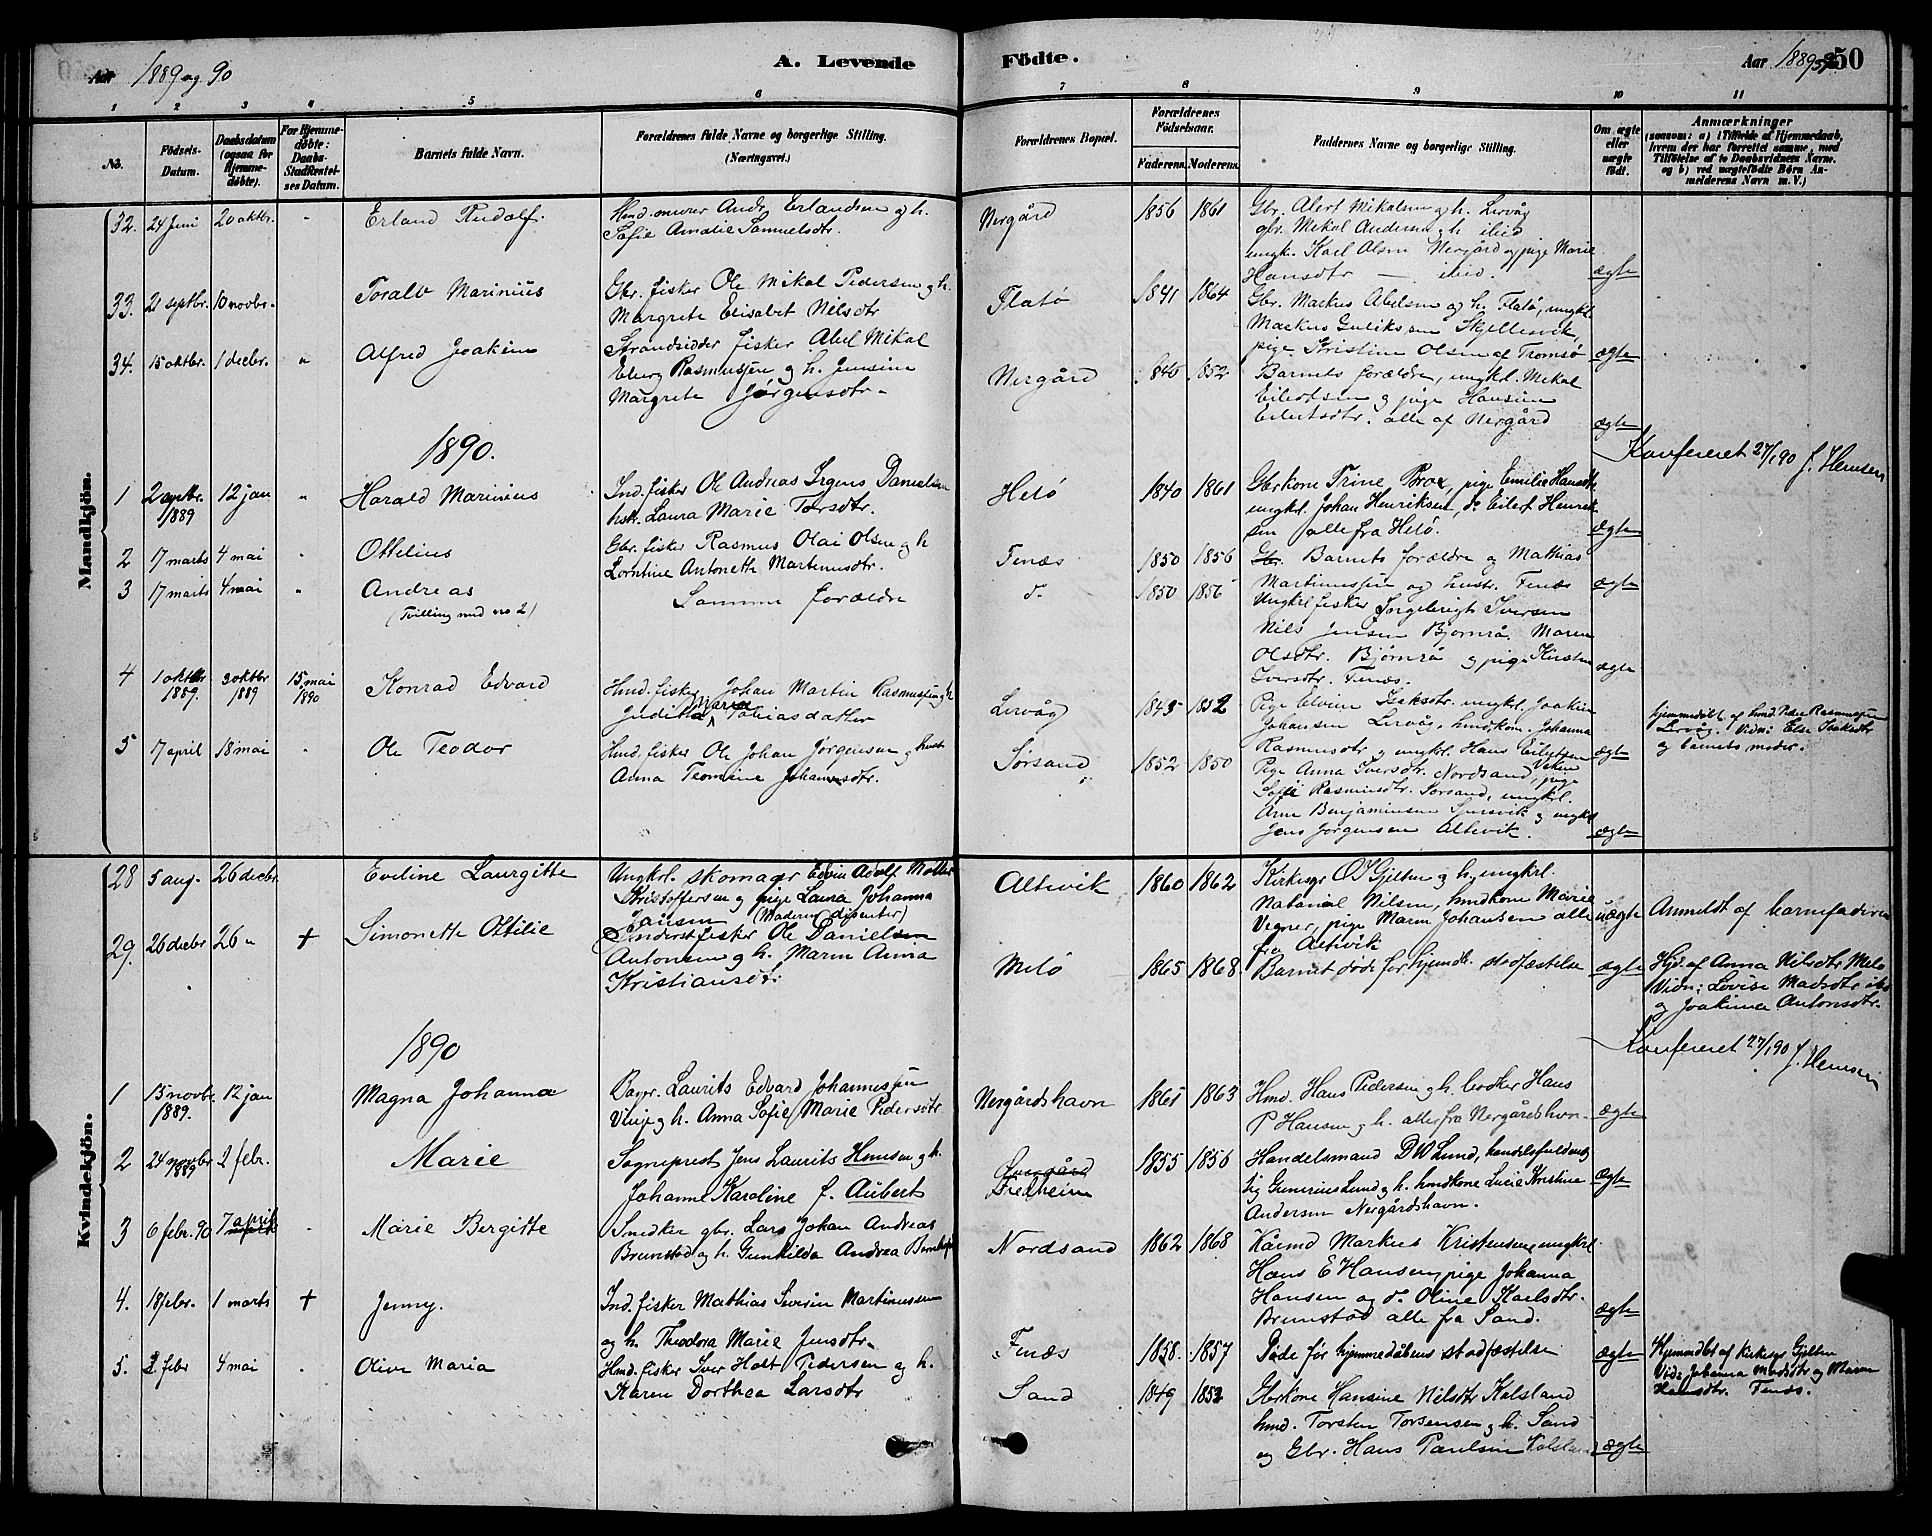 Aar 1889 og 90
A. Levende
Födte.
Aar 1889
50
1 2 3 4 5 6 7 8 9 10 11
No.
Födsels-Datum.
Daabsdatum (ogsaa for Hjemme-döbte).
For Hjemme-döbte: Daabs-Stadfæstel-ses Datum.
Barnets fulde Navn.
Forældrenes fulde Navne og borgerlige Stilling. (Næringsvei.)
Forældrenes Bopæl.
Forældrenes Födselsaar.
Faderens.
Moderens.
Faddernes Navne og borgerlige Stilling.
Om ægte eller uægte födt.
Anmærkninger
(saasom: a) i Tilfælde af Hjemmedaab, hvem der har forrettet samme, med Tilföielse af to Daabsvidners Navne. og b) ved uægtefödte Börn An-melderens Navn m. V.)
Mandkjön.
32. 24 juni 20 oktbr. " Erland Rudolf.
Hmd. murer Andr. Erlandsen og h.
Sofie Amalie Samuelsdtr.
Nergård 1856 1861
Gbr. Alert Mikalsen og h. Lervåg
gbr. Mikal Andersen og h. ibid
ungk. Karl Olsen Nergård og pige Marie
Hansdtr — ibid.
ægte
33. 21 septbr. 10 novbr. Toralv Marinius
Gbr. fisker Ole Mikal Pedersen og h.
Margrete Elisabet Nilsdtr
Flatö 1841 1864
Gbr. Markus Abelsen og h. Flatö, ungkl.
Markus Guliksen Skjellesvik,
pige Kristine Olsen af Tromsö
ægte
34. 15 oktbr. 1 decbr. " Alfred Joakim
Strandsidder fisker Abel Mikal
Eberg Rasmussen og h. Jensine
Margrete Jörgensdtr.
Nergård 1840 1852
Barnets forældre, ungkl. Mikal
Eilertsen og pige Hansine
Eilertsdtr. alle af Nergård
ægte
1890.
Konfereret 27/1 90 J. Hemsen
1 2 septbr. 1889 12 jan " Harald Marinius
Ind. fisker Ole Andreas Irgens Danielsen
hstr. Laura Marie Torsdtr.
Helö 1840 1861
Gbrkone Trine Brox, pige Emilie Hansdtr
ungkl. Johan Henriksen, do Eilert Henrik-
sen alle fra Helö.
ægte
2 17 marts 4 mai " Ottelius
Gbr. fisker Rasmus Olai Olsen og h
Lorntine Antonette Martinusdtr.
Finæs 1850 1856
Gbr. Barnets forældre og Mathias
Martinussen og hustr. Finæs
ægte
3 17 marts 4 mai " Andreas
(Tvilling med no 2)
Samme forældre
do 1850 1856
Ungkrl fisker Ingebrigt Iversen
Nils Jensen Bjørnrå. Maren
Olsdtr. Bjørnrå og pige Kirsten
Iversdtr. Finæs.
ægte
4 1 oktbr 1889. 3 oktbr 1889 15 mai 1890 Konrad Edvard
Hmd. fisker Johan Martin Rasmussen og h
Juditha Maria Tobiasdatter
Lervåg 1845 1852
Pige Elvine Isaksdtr. ungkl. Joakim
Johansen Lervåg, hmdkone Johanna
Rasmusdtr og ungkl. Hans Eilertsen Viken
ægte
hjemmedöbt af hmd. Peder Rasmussen
Lervåg. Vidn: Else Isaksdtr
og barnets moder.
5 17 april 18 mai " Ole Teodor
Hmd. fisker Ole Johan Jørgensen og hustr
Anna Teomine Johannesdtr.
Sörsand 1852 1850
Pige Anna Iversdtr. Nordsand, pige
Sofie Rasmusdtr. Sorsand, ungkrl.
Arn Benjaminsen og ungkl
Jens Jørgensen Altevik.
ægte
Kvindekjön.
28 5 aug. 26 decbr. Eveline Laurgitte
Ungkrl. skomager Edvin Adolf Møller
Kristoffersen og pige Laura Johanna
Jansen (Moderen dissenter)
Altevik 1860 1862
Kirkesgr O J Gjelten og h. ungkrl.
Natanael Nilsen, hmdkone Marie
Vegner, pige Maren Johansen alle
fra Altevik
uægte
Anmeldt af barnefaderen
29. 26 decbr 26 " + Simonette Ottilie
Inderst fisker Ole Danielsen
Antonsen og h. Maren Anna
Kristiansdtr
Melö 1865 1868
Barnet döde för hjemdb. stadfæstelse
ægte
Hjd. af Anna Nilsdtr Melö
Vidn: Lovise Madsdtr ibid
og Joakima Antonsdtr.
1890
Konfereret 27/1 90 J. Hemsen
1 15 novbr. 1889. 12 jan Magna Johanna
Bager. Laurits Edvard Johannessen
Vinje og h. Anna Sofie Marie Pedersdtr
Nergårdshavn 1861 1863
Hmd. Hans Pedersen og h. bødker Hans
P Hansen og h. alle fra Nergårdshvn.
ægte
2 24 novbr 1889 2 febr. Marie
Sogneprest Jens Laurits Hemsen og h.
Johanne Karoline f. Aubert
Övergård
Fredheim 1855 1856
Handelsmand D W Lund, handelsfuldmæg-
tig Gunerius Lund og h. hmdkone Lucie Kristine
Andersen Nergårdshavn.
ægte
3 6 febr. 90 7 april Marie Bergitte
Smedker gbr. Lars Johan Andreas
Brunstad og h. Gunhilda Andrea
Nordsand 1862 1868
Kårmd Markus Kristensen, ungkrl.
Hans E Hansen, pige Johanna
Hansen og do Oline Karlsdtr.
Brunstad alle fra Sand.
ægte
4. 18 febr. 1 marts + Jenny.
Ind. fisker Mathias Severin Martinussen
og h. Theodora Marie Jensdtr.
Finæs 1858. 1857
Döde før hjemmedåbens stadfæstelse
ægte
Hjemmdbt af Kirkesgr Gjelten
Vid: Johanna Madsdtr og Maren
Hansdtr. Finæs.
5. 2 febr 4 mai " Olive Maria
Hmd. fisker Iver Holt Pedersen og h.
Karen Dorthea Larsdtr
Sand 1849 1852
Gbrkone Hansine Nilsdtr Kalsland
hmd. Torsten Torsensen og h. Sand
og Gbr. Hans Paulsen Kalsland
ægte